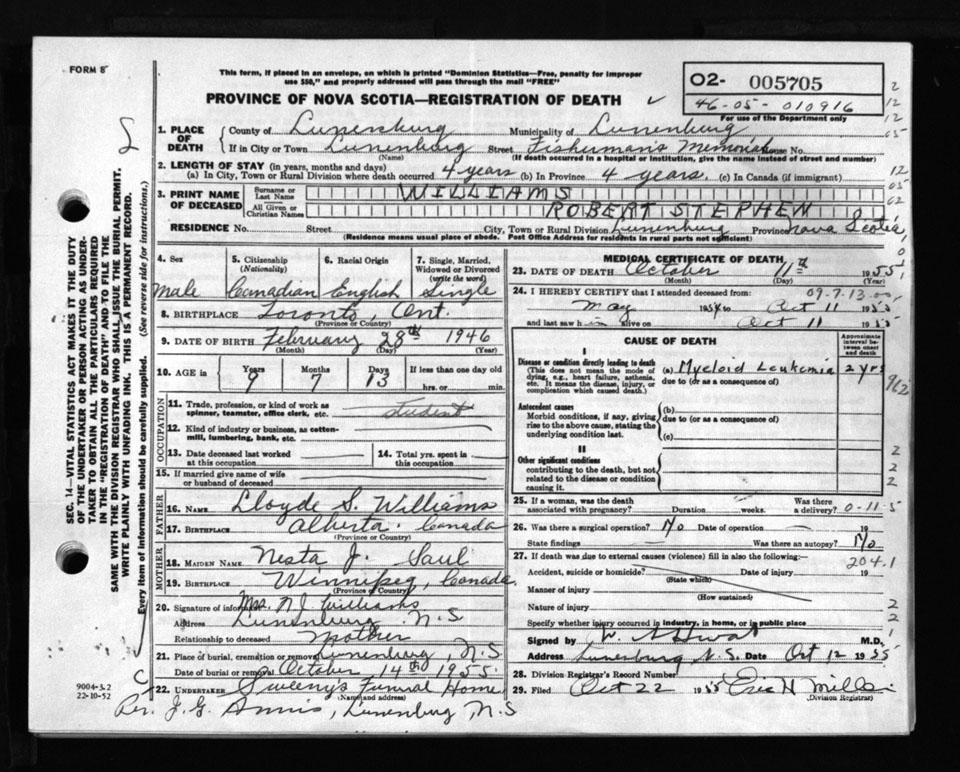 FORM 8
This form, if placed in an envelope, on which is printed "Dominion Statistics—Free, penalty for improper
use $50," and properly addressed will pass through the mail "FREE"
PROVINCE OF NOVA SCOTIA—REGISTRATION OF DEATH
02- 005705
46-05-010916
For use of the Department only
SEC. 14—VITAL STATISTICS ACT MAKES IT THE DUTY
OF THE UNDERTAKER OR PERSON ACTING AS UNDER-
TAKER TO OBTAIN ALL THE PARTICULARS REQUIRED
IN THE "REGISTRATION OF DEATH" AND TO FILE THE
SAME WITH THE DIVISION REGISTRAR WHO SHALL ISSUE THE BURIAL PERMIT.
WRITE PLAINLY WITH UNFADING INK. THIS IS A PERMANENT RECORD.
Every item of information should be carefully supplied. (See reverse side for instructions.)
1. PLACE OF DEATH
County of Lunenburg Municipality of Lunenburg
If in City or Town Lunenburg Street Fisherman's Memorial House No.
(Name) (If death occurred in a hospital or institution, give the name instead of street and number)
2. LENGTH OF STAY (in years, months and days)
(a) In City, Town or Rural Division where death occurred 4 years (b) In Province 4 years. (c) In Canada (if immigrant)
3. PRINT NAME OF DECEASED
Surname or Last Name WILLIAMS
All Given or Christian Names ROBERT STEPHEN
RESIDENCE No. Street City, Town or Rural Division Lunenburg Province Nova Scotia
(Residence means usual place of abode. Post Office Address for residents in rural parts not sufficient)
4. Sex 5. Citizenship (Nationality) 6. Racial Origin 7. Single, Married, Widowed or Divorced (write the word)
Male Canadian English Single
8. BIRTHPLACE Toronto, Ont.
(Province or Country)
9. DATE OF BIRTH February 28th 1946
(Month) (Day) (Year)
10. AGE in Years Months Days If less than one day old
9 7 13 hrs. or min.
OCCUPATION
11. Trade, profession, or kind of work as spinner, teamster, office clerk, etc. student
12. Kind of industry or business, as cotton-mill, lumbering, bank, etc.
13. Date deceased last worked at this occupation
14. Total yrs. spent in this occupation
15. If married give name of wife or husband of deceased
FATHER
16. NAME Lloyde S. Williams
17. BIRTHPLACE Alberta. Canada
(Province or Country)
MOTHER
18. MAIDEN NAME Nesta J. Saul
19. BIRTHPLACE Winnipeg, Canada.
(Province or Country)
20. Signature of informant Mrs. N J Williams
Address Lunenburg N.S
Relationship to deceased Mother
21. Place of burial, cremation or removal Lunenburg, N.S
Date of burial or removal October 14th 1955.
22. UNDERTAKER Sweeny's Funeral Home
(Name and address)
Rev. J. G. Annis, Lunenburg, N.S
9004-3.2
22-10-52
MEDICAL CERTIFICATE OF DEATH
23. DATE OF DEATH October 11th 1955
(Month) (Day) (Year)
24. I HEREBY CERTIFY that I attended deceased from: 09-7-13
May 1954 to Oct 11 1955
and last saw him alive on Oct 11 1955
CAUSE OF DEATH
Approximate interval between onset and death
I
Disease or condition directly leading to death
(This does not mean the mode of dying, e.g., heart failure, asthenia, etc. It means the disease, injury, or complication which caused death.)
(a) Myeloid Leukemia 2 yrs
due to (or as a consequence of)
Antecedent causes
Morbid conditions, if any, giving rise to the above cause, stating the underlying condition last.
(b)
due to (or as a consequence of)
(c)
II
Other significant conditions
contributing to the death, but not related to the disease or condition causing it.
25. If a woman, was the death associated with pregnancy? Duration weeks. Was there a delivery? 0-11-5
26. Was there a surgical operation? No Date of operation 19
State findings Was there an autopsy? No
27. If death was due to external causes (violence) fill in also the following:— 204.1
Accident, suicide or homicide? Date of injury 19
(State which)
Manner of injury
(How sustained)
Nature of injury
Specify whether injury occurred in industry, in home, or in public place
Signed by M.D.
Address Lunenburg N.S. Date Oct 12 1955
28. Division Registrar's Record Number
29. Filed Oct 22 1955 Eric H Miller
(Division Registrar)